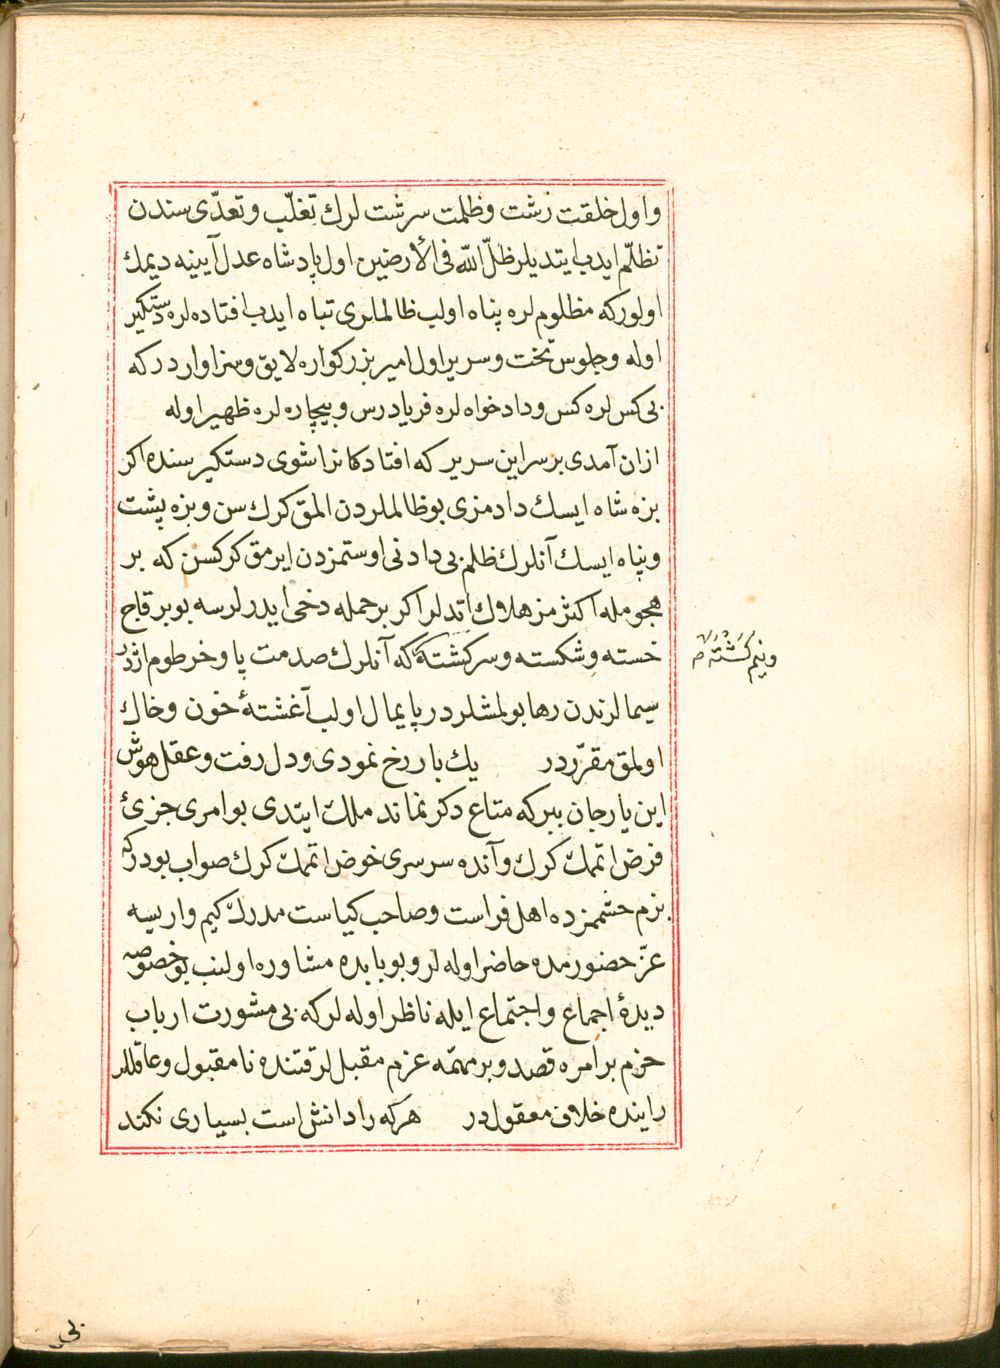 واول خلقت زشت وظلمت سرشت لرك تغلّب وتعدّى سندن
تظلّم ايدب ايتديلر ظلّ الله فى الارضين اول پادشاه عدل آيينه ديمك
اولور كه مظلوم لره پناه اولب ظالملرى تباه ايدب افتاده لره دستكير
اوله وجلوس تخت وسرير اول امير بزركواره لايق وسزاوار در كه
بى كس لره كس ودادخواه لره فريادرس وبيچاره لره ظهير اوله
ازان آمدى بر سر اين سرير كه افتادكانرا شوى دستكير سنده اكر
بزه شاه ايسك دادمزى بو ظالملردن المق كرك سن وبزه پشت
وپناه ايسك آنلرك ظلم بى دادنى اوستمزدن ايرمق كركسن كه بر
هجومله اكثرمز هلاك اتدلر اكر بر حمله دخى ايدرلرسه بو بر قاچ
خسته وشكسته وسركشته كه آنلرك صدمت پا وخرطوم اژدر
ونيم كشته
سيمالرندن رها بولمشلردر پايمال اولب آغشتهٔ خون وخاك
اولمق مقرّردر يك بار رخ نمودى ودل رفت وعقل هوش
اين بار جان ببر كه متاع دكر نماند ملك ايتدى بو امرى جزئ
فرض اتمك كرك وآنده سرسرى خوض اتمك كرك صواب بودر كه
بزم حشممزده اهل فراست وصاحب كياست مدرك كيم واريسه
عزّ حضورمده حاضر اوله لر وبو بابده مشاوره اولنب بو خصوصه
ديدهٔ اجماع واجتماع ايله ناظر اوله لر كه بى مشورت ارباب
حزم بر امره قصد وبر مهمّه عزم مقبل لر قتنده نامقبول وعاقللر
راينده خلاف معقولدر هركه را دانش است بسيارى نكند
بى